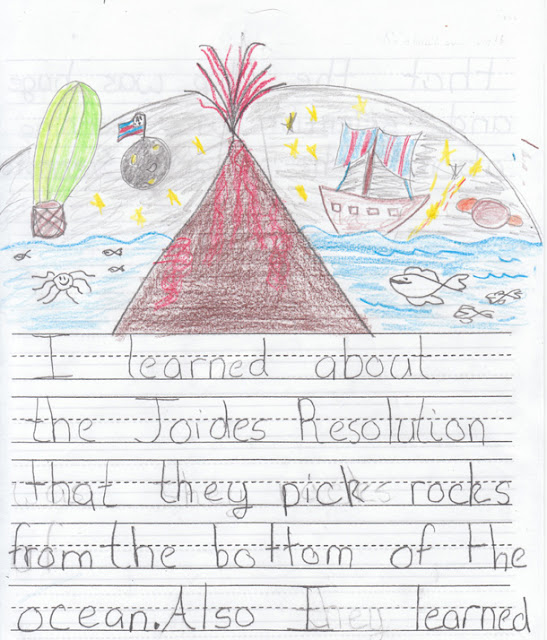 I learned about
the Joides Resolution
that they pick rocks
from the bottom of the
ocean. Also they learned